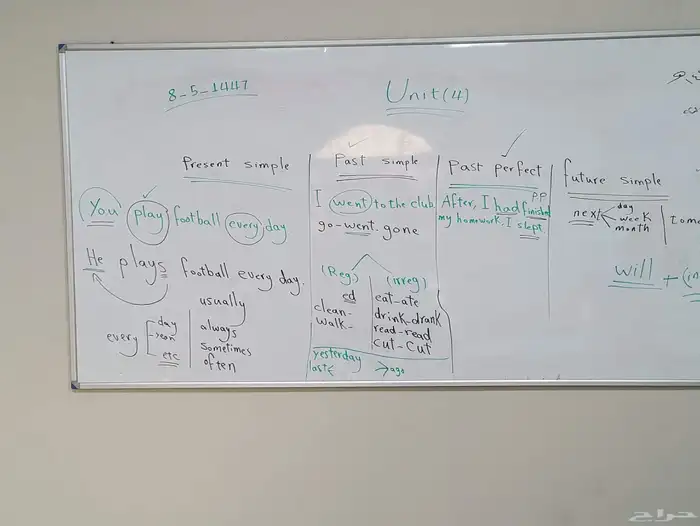 8-5-1447
Unit (4)
Present simple
You play football every day
He plays football every day.
every
day
year
etc
usually
always
sometimes
often
Past simple
I went to the club.
go-went. gone
(Reg)
ed
clean-
walk-
(irreg)
eat-ate
drink-drank
read-read
cut-cut
yesterday
last
ago
Past perfect
P.P
After, I had finished
my homework. I slept.
future simple
next
day
week
month
will + (in
حراج